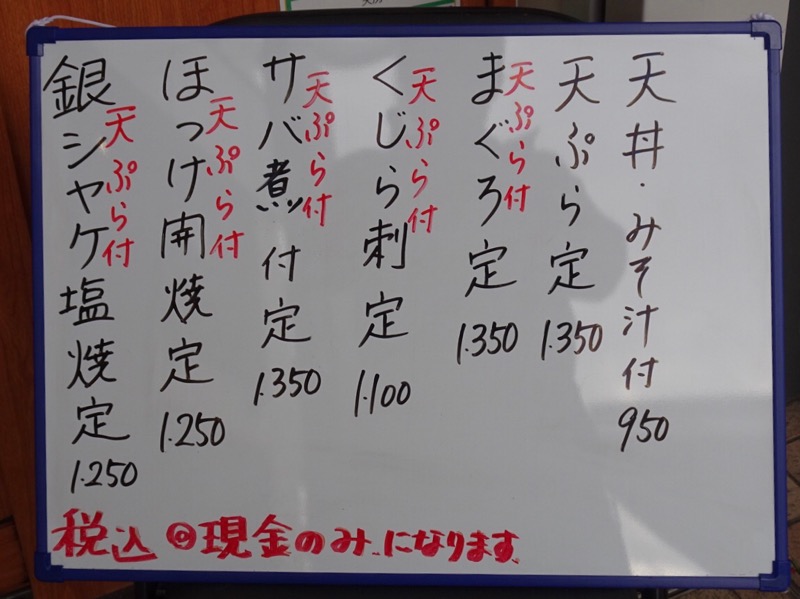 天丼・みそ汁付 950
天ぷら定 1.350
まぐろ定 1.350
天ぷら付
くじら刺定 1.100
天ぷら付
サバ煮付定 1.350
天ぷら付
ほっけ開焼定 1.250
天ぷら付
銀シャケ塩焼定 1.250
天ぷら付
税込 ◎現金のみになります